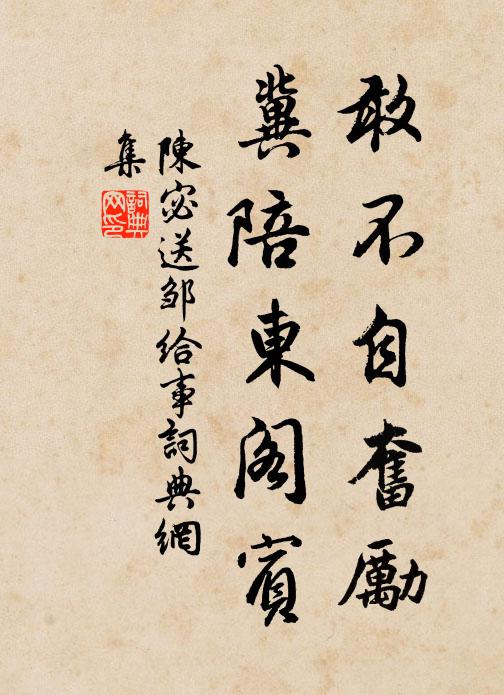 敢不自奮勵
冀陪東閣賓
陳宓送邹給事詞典網
集
詞典
网印